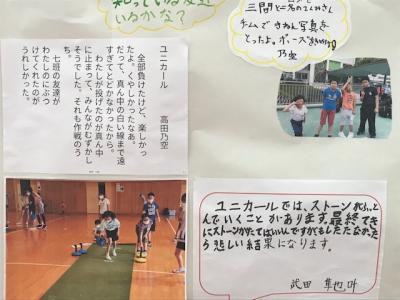 知っている友達
いるかな?
チームできねん写真を
とったよ。ポーズ
乃空
ユニカール
高田乃空
全部負けたけど、楽しかっ
たよ。くやしかったなあ。
だって、真ん中の白い線まで遠
すぎてとどかなかったから。
わたしが投げたのが真ん中
に止まって、みんながむずかし
そうでした。それも作戦のう
ち。
七班の友達が
わたしのにぶつ
けてくれたのが
うれしかった。
ユニカールでは、ストーン
んでいくことがあります。最終てき
にストーンが
ら悲しい結果になります。
武田